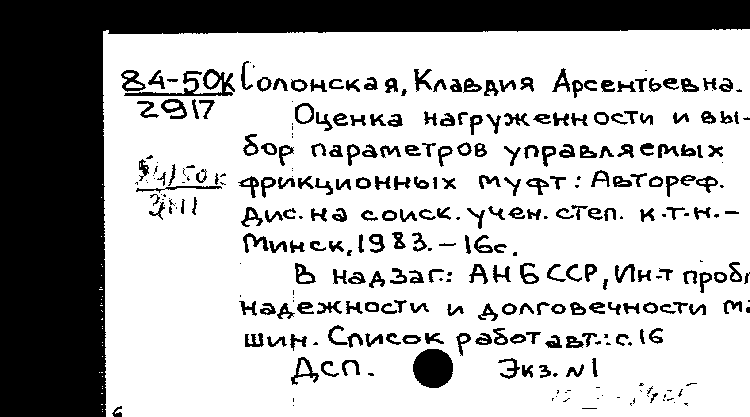 84-50К Солонская, Клавдия Арсентьевна.
2917
Оценка нагруженности и вы-
бор параметров управляемых
фрикционных муфт: Автореф.
дис. на соиск. учен. степ. к.т.н.-
Минск, 1983. - 16с.
В надзаг.: АН БССР, Ин-т пробл
надежности и долговечности ма
шин. Список работ авт.: с. 16
ДСП. Экз. N1